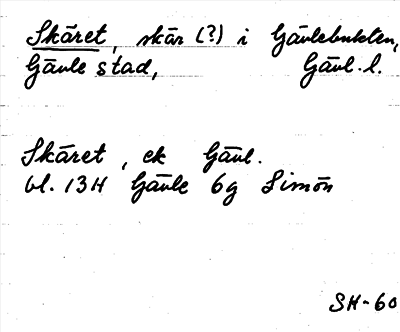 Skäret, skär (?) i Gävlebukten,
Gävle stad, Gävl. l.
Skäret, ek Gävl.
bl. 13H Gävle 6g Simön
SH-60